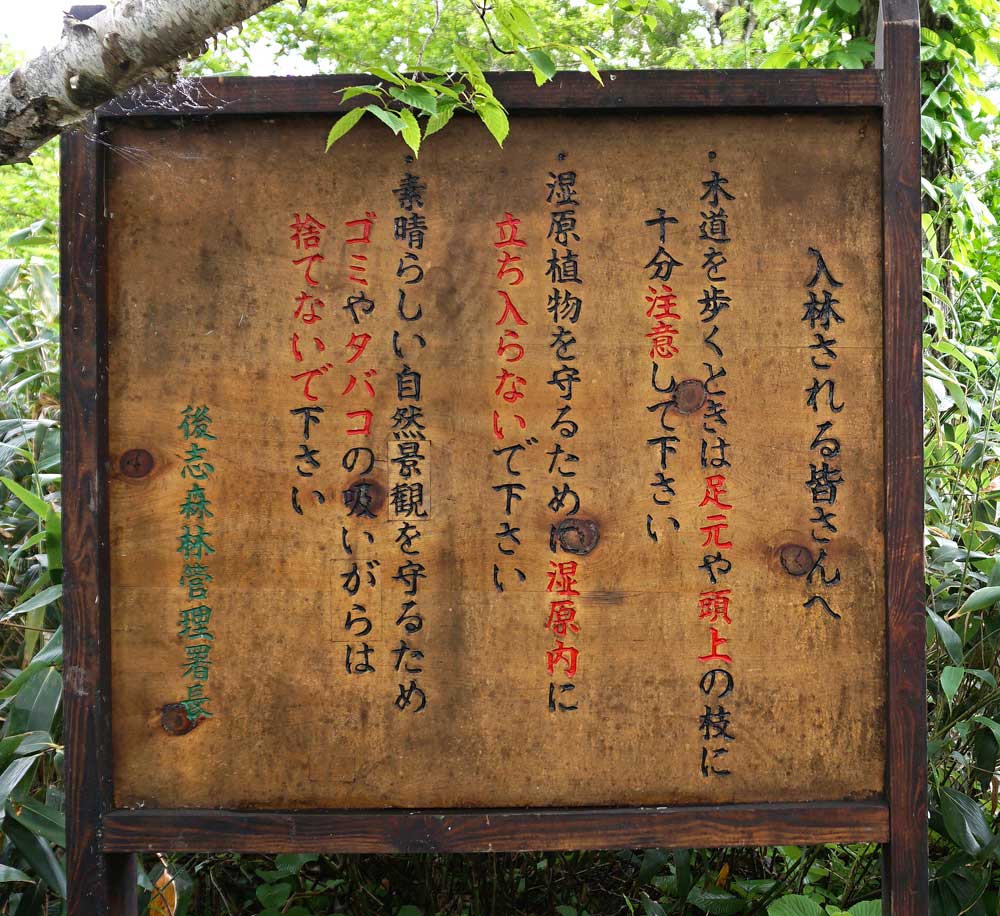 入林される皆さんへ
・木道を歩くときは足元や頭上の枝に
十分注意して下さい
・湿原植物を守るために湿原内に
立ち入らないで下さい
・素晴らしい自然景観を守るため
ゴミやタバコの吸いがらは
捨てないで下さい
後志森林管理署長